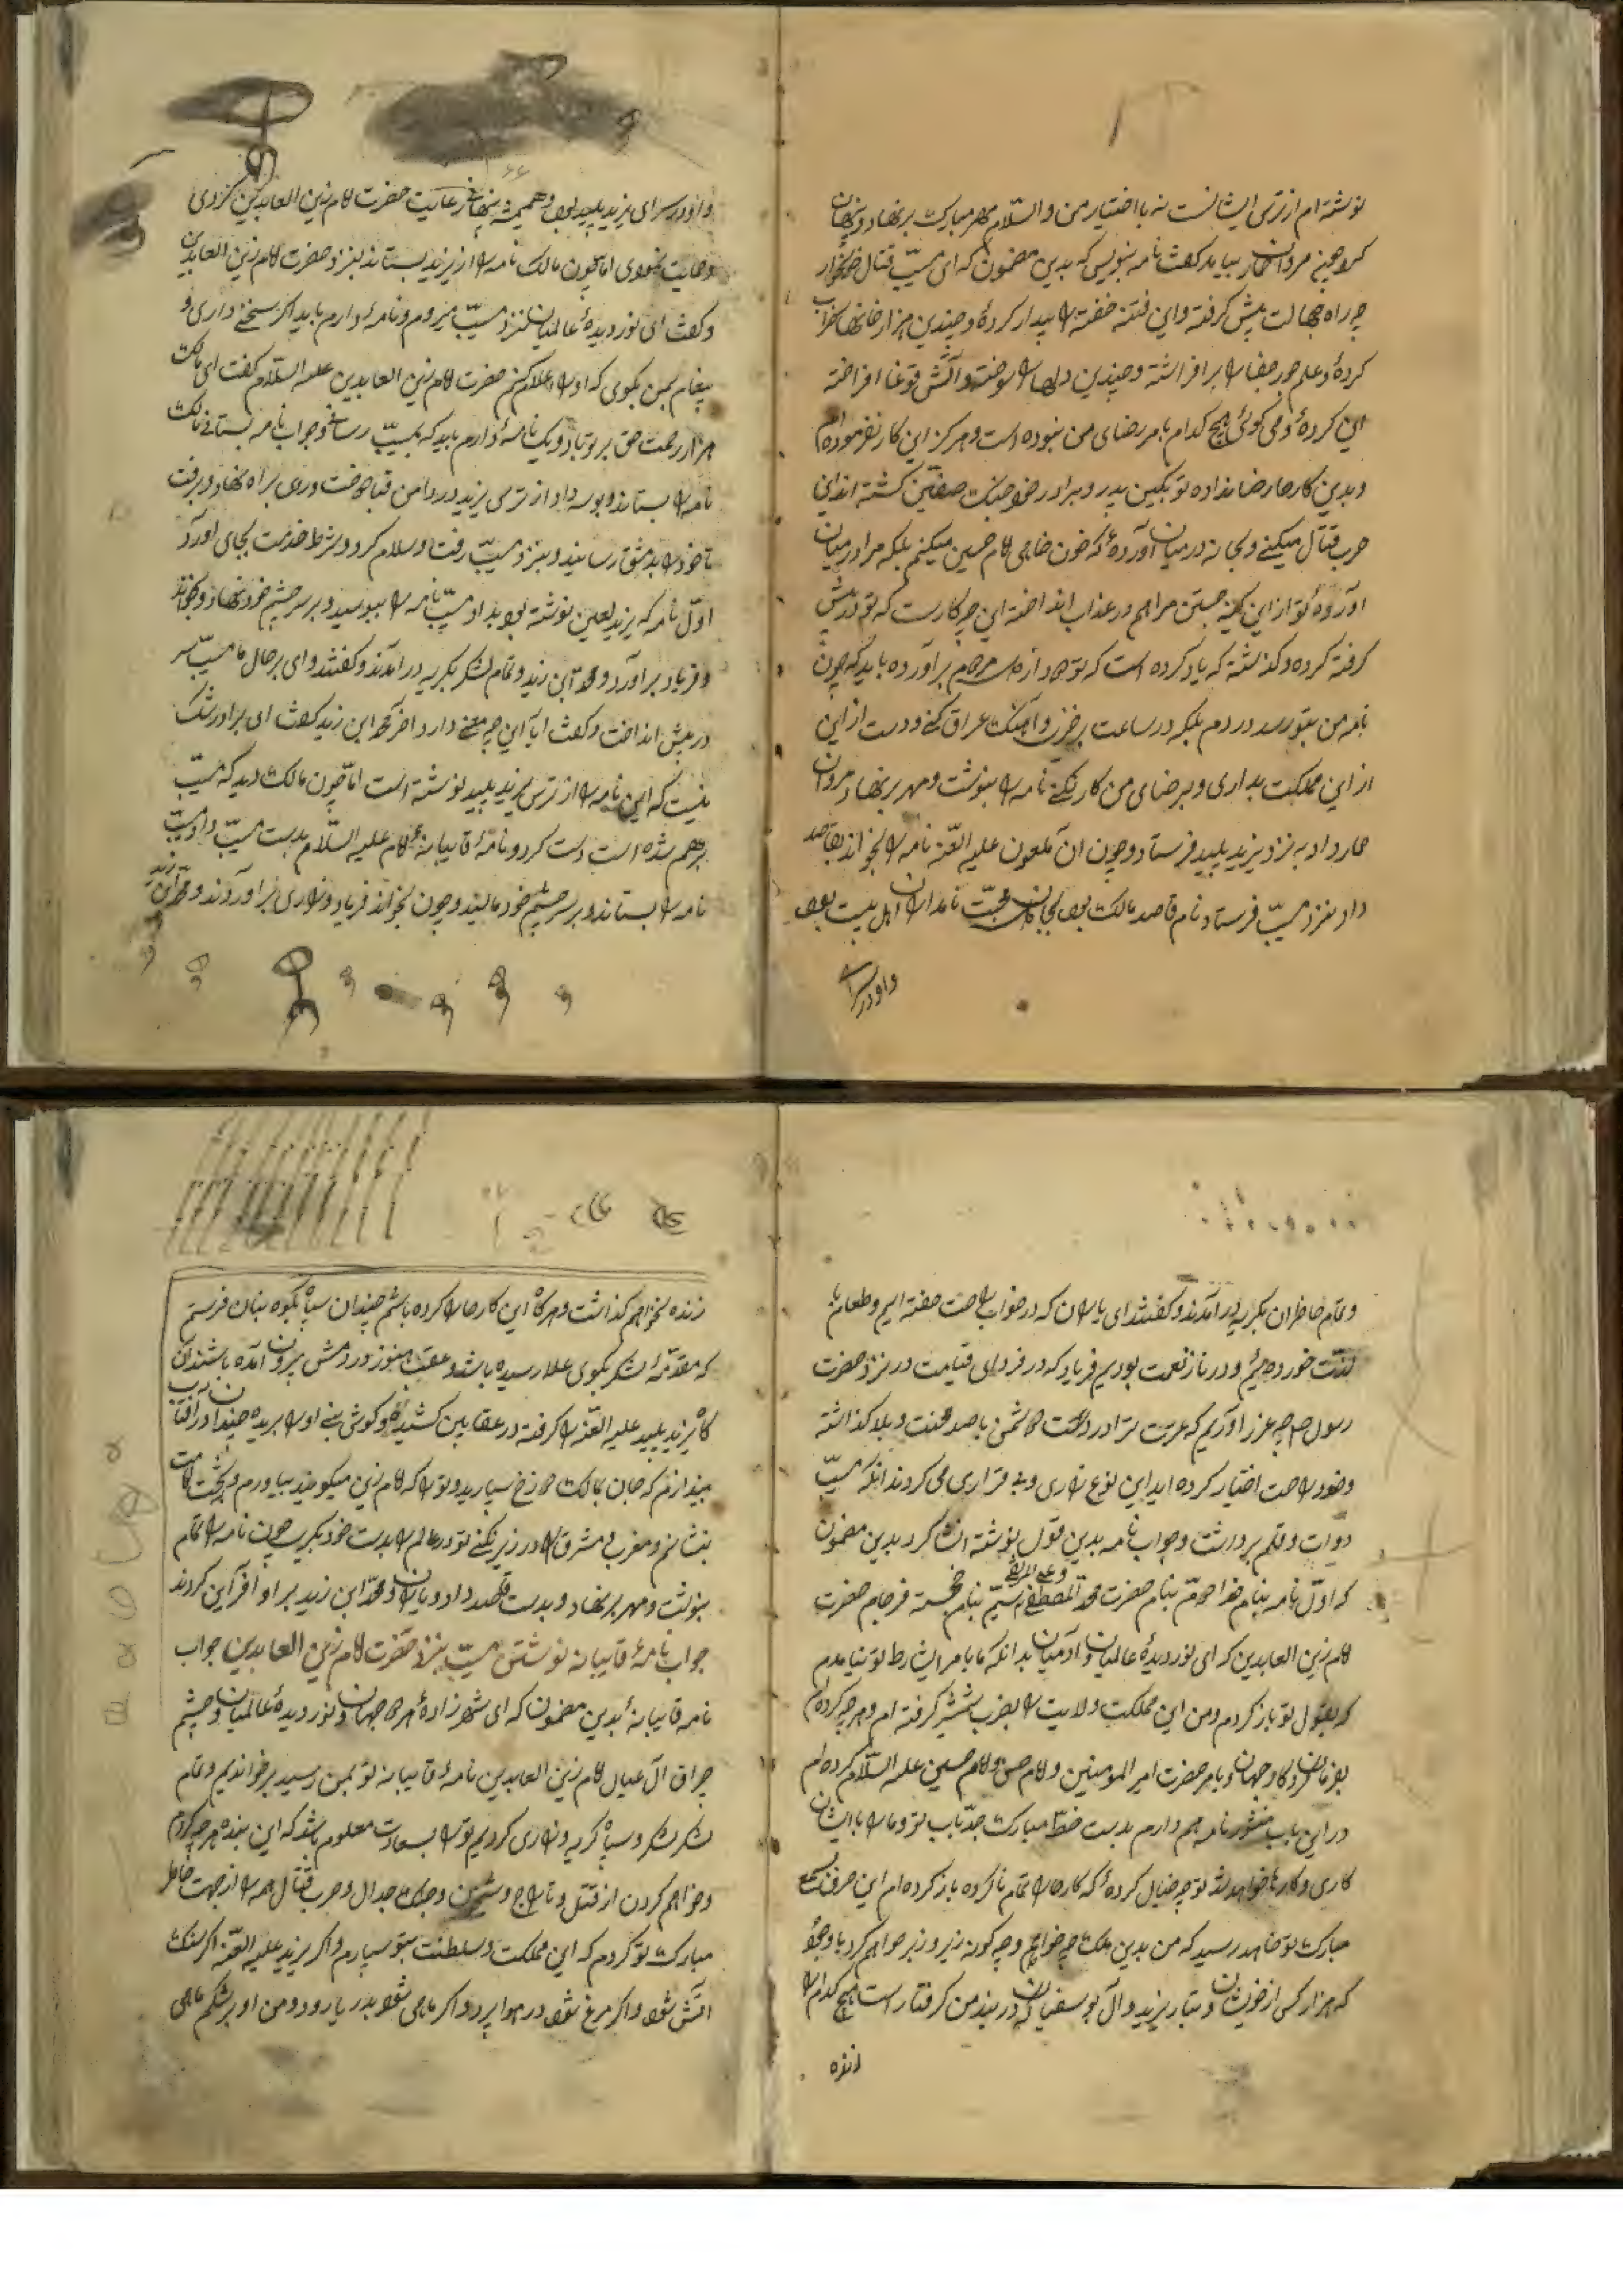 نوشته ام از ترس ایشانست نه با اختیار من والسّلام مهر مبارک بر نهاد و پنهان
کرد چنین مروان حمار بیامد کفت نامه بنویس که بدین مضمون که ای مسیّب قتال خونخوار
چه راه جهالت پیش کرفته و این فتنه خفته را بیدار کردهٔ و چندین هزار خانها خراب
کردهٔ و علم جور جفا را بر افراشته و چندین دلها را سوخته و آتش غوغا افراخته
این کردهٔ و می کوئی هیچ کدام بامر رضای من نبوده است و هرکز این کار نفرموده ام
و بدین کارها رضا نداده تو بکین پدر و برادر خود جنک صفّین کشته اند این
حرب قتال میکنے و بهانه درمیان آوردهٔ که خون خاهی امام حسین میکنم بلکه مرا درمیان
آوردهٔ تو از این کینه جستن مرا هم در عذاب انداخته این چه کارست که تو در پیش
کرفته کرده و کذشته که یاد کرده است که تو باید که چون
نامه من بتو رسد در دم بلکه در ساعت برخیزی و آهنک عراق کنے و دست از این
از این مملکت بداری و برضای من کار نکنے نامه را بنوشت و مهر بر نهاد مروان
حمار داد به نزد یزید پلید فرستاد و چون آن ملعون علیه اللعنه نامه را بخواند بقاصد
داد بنزد مسیّب فرستاد نام قاصد مالک بود بجان محبّت نامدار اهل بیت بود
و او در سرای
و او در سرای یزید پلید بود و همیشه پنهان رعایت حضرت امام زین العابدین کردی
و حمایت نمودی اما چون مالک نامه را از یزید بستاند بنزد حضرت امام زین العابدین
و کفت ای نور دیدهٔ عالمیان بنزد مسیّب میروم و نامهٔ دارم باید اکر سخنے داری و
پیغام بمن بکوی که او را اعلام کنم حضرت امام زین العابدین علیه السّلام کفت ای مالک
هزار رحمت حق بر تو باد و یک نامهٔ دارم باید که بمسیّب رسانے و جواب نامه بستانے مالک
نامه را بستاند و بوسه داد از ترس یزید در دامن قبا دوخت و روی براه نهاد و برفت
تا خود را بدمشق رسانید و بنزد مسیّب رفت و سلام کرد و شرط خدمت بجای آورد
اوّل نامه که یزید لعین نوشته بود بداد مسیّب نامه را ببوسید و بر سر چشم خود نهاد و بخواند
و فریاد بر آورد و محمّد ابن زید و تمام لشکر بکریه در آمدند و کفتند وای بر حال ما مسیّب سر
در پیش انداخت و کفت آیا این چه معنے دارد آخر محمّد ابن زید کفت ای برادر شک
نیست که این نامه را از ترس یزید پلید نوشته است امّا چون مالک دید که مسیّب
برهم شده است دست کرد و نامهٔ قایبانهٔ امام علیه السّلام بدست مسیّب داد مسیّب
نامه را بستاند و بر سر چشم خود مالید و چون بخواند فریاد و زاری بر آوردند و محمّد ابن زید
و تمام حاظران بکریه در آمدند و کفتند ای یاران که در خواب راحت خفته ایم و طعام با
لذّت خورده ایم و در ناز نعمت بودیم فریاد که در فردای قیامت در نزد حضرت
رسول ص چه عزر آوریم که عترت ترا در دست دشمن با صد محنت و بلا کذاشته
و خود راحت اختیار کرده اید این نوع زاری و بی قراری می کردند آنکه مسیّب
دوات و قلم برداشت و جواب نامه بدین قول نوشته انشا کرد بدین مضمون
که اوّل نامه بنام خدا دویّم بنام حضرت محمّد المصطفی و علی المرتضی سیّم بنام خجسته فرجام حضرت
امام زین العابدین که ای نور دیدهٔ عالمیان و آدمیان بدانکه ما بامر این شرط تو نیامدم
که بقول تو باز کردم و من این مملکت ولایت را بضرب شمشیر کرفته ام و هر چه کرده ام
بفرمان کردکار جهان و بامر حضرت امیر المومنین و امام حسن و امام حسین علیه السّلام کرده ام
در این باب منشور نامه هم دارم بدست خطّ مبارک جدّ باب تو و ما را با ایشان
کاری و کارها خواهد شد تو چه خیال کردهٔ که کارها را تمام ناکرده باز کرده ام این حرفت
مبارک تو خاهد رسید که من بدین ملک چه خواهم و چه کونه زیر و زبر خواهم کرد با وجود
که هزار کس از خویشان و تبار یزید و آل ابو سفیان که در بند من کرفتار است هیچ کدام را
زنده
زنده نخواهم کذاشت و هرکاه این کارها را کرده باشم چندان سپاه بکوه بنان فرستم
که مقدّمهٔ لشکر بکوی علا رسیده باشد و عقب هنوز در دمشق بیرون آمده باشند آن
کاه یزید پلید علیه اللعنه را کرفته در عقابین کشیده و کوش بینے او را بریده چندان در آفتاب
بیندازم که جان بمالک دوزخ سپارید و تو را که امام زین میکویند بیاورم و بتخت امامت
بنشانم و مغرب و مشرق را در زیر نکنے تو در عالم را بدست خود بکیرید چون نامه را تمام
بنوشت و مهر بر نهاد و بدست قاصد داد و یاران و محمّد ابن زید بر او آفرین کردند
جواب نامهٔ قایبانه نوشتن مسیّب بنزد حضرت امام زین العابدین جواب
نامه قایبانهٔ بدین مضمون که ای شهزادهٔ هر دو جهان و نور دیدهٔ عالمیان و چشم
چراق آل عبای امام زین العابدین نامهٔ قایبانه تو بمن رسید بر خواندیم و تمام
لشکر و سپاه کریه و زاری کردیم تو را بسعادت معلوم باشد که این بنده هر چه کردم
و خواهم کردن از قتل و تاراج و شبخون و جنک و جدال و حرب قتال همه را از جهت خاطر
مبارک تو کردم که این مملکت و سلطنت بتو سپارم و اکر یزید علیه اللعنه اکر سنک
آتش شود و اکر مرغ شود در هوا پرد و اکر ماهی شود بدریا رود و من او بر شکم ماهی